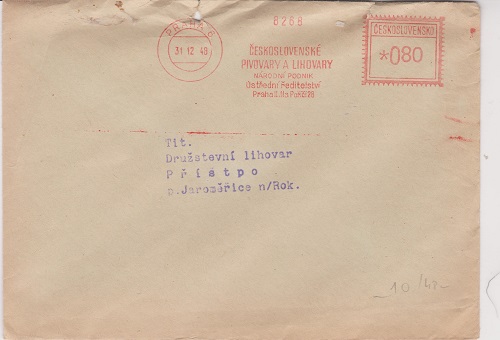 PRAHA 6
31.12.49
6268
ČESKOSLOVENSKÉ
PIVOVARY A LIHOVARY
NÁRODNÍ PODNIK
Ústřední ředitelství
Praha II, Na Poříčí 28
ČESKOSLOVENSKO
*080
Tit.
Družstevní lihovar
Příštpo
p.Jaroměřice n/Rok.
10/42-